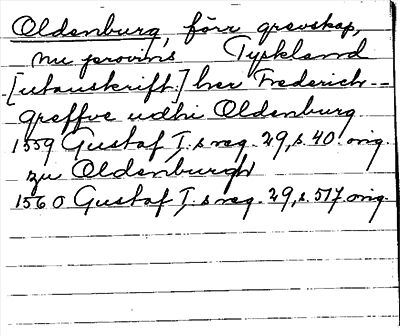 Oldenburg, förr grevskap,
nu provins Tyskland
[utanskrift:] her Frederich --
greffve udhi Oldenburg
1559 Gustaf I:s reg. 29, s. 40. orig.
zu Oldenburgh
1560 Gustaf I:s reg. 29, s. 517 orig.